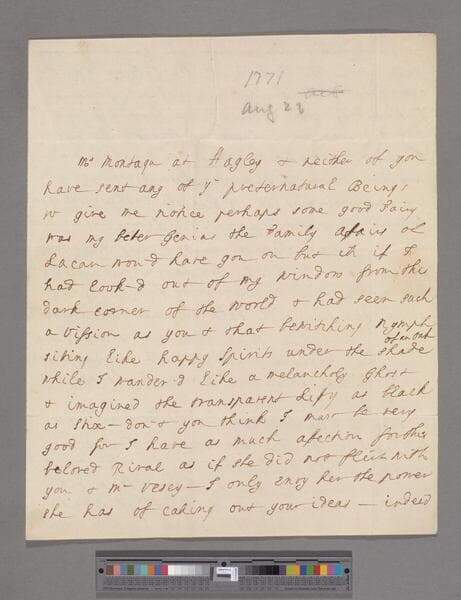 1771
Aug 28
Mrs Montagu at Hagley & neither of you
have sent any of yr preternatural Beings
to give me notice perhaps some good Fairy
was my beter Genius the Family Afairs of
Lucan wou-d have gon on but if I
had look-d out of my window from this
dark corner of the world & had seen such
a vission as you & that bewitching Nymph
siting like happy Spirits under the shade
of an oak
while I wander-d like a melancholy Ghost
& imagined the transparent Lify as black
as Stix – don-t you think I must be very
good for I have as much afection for this
beloved Rival as if she did not flirt with
you & Mr Vesey – I only envy her the power
she has of calling out your ideas – indeed